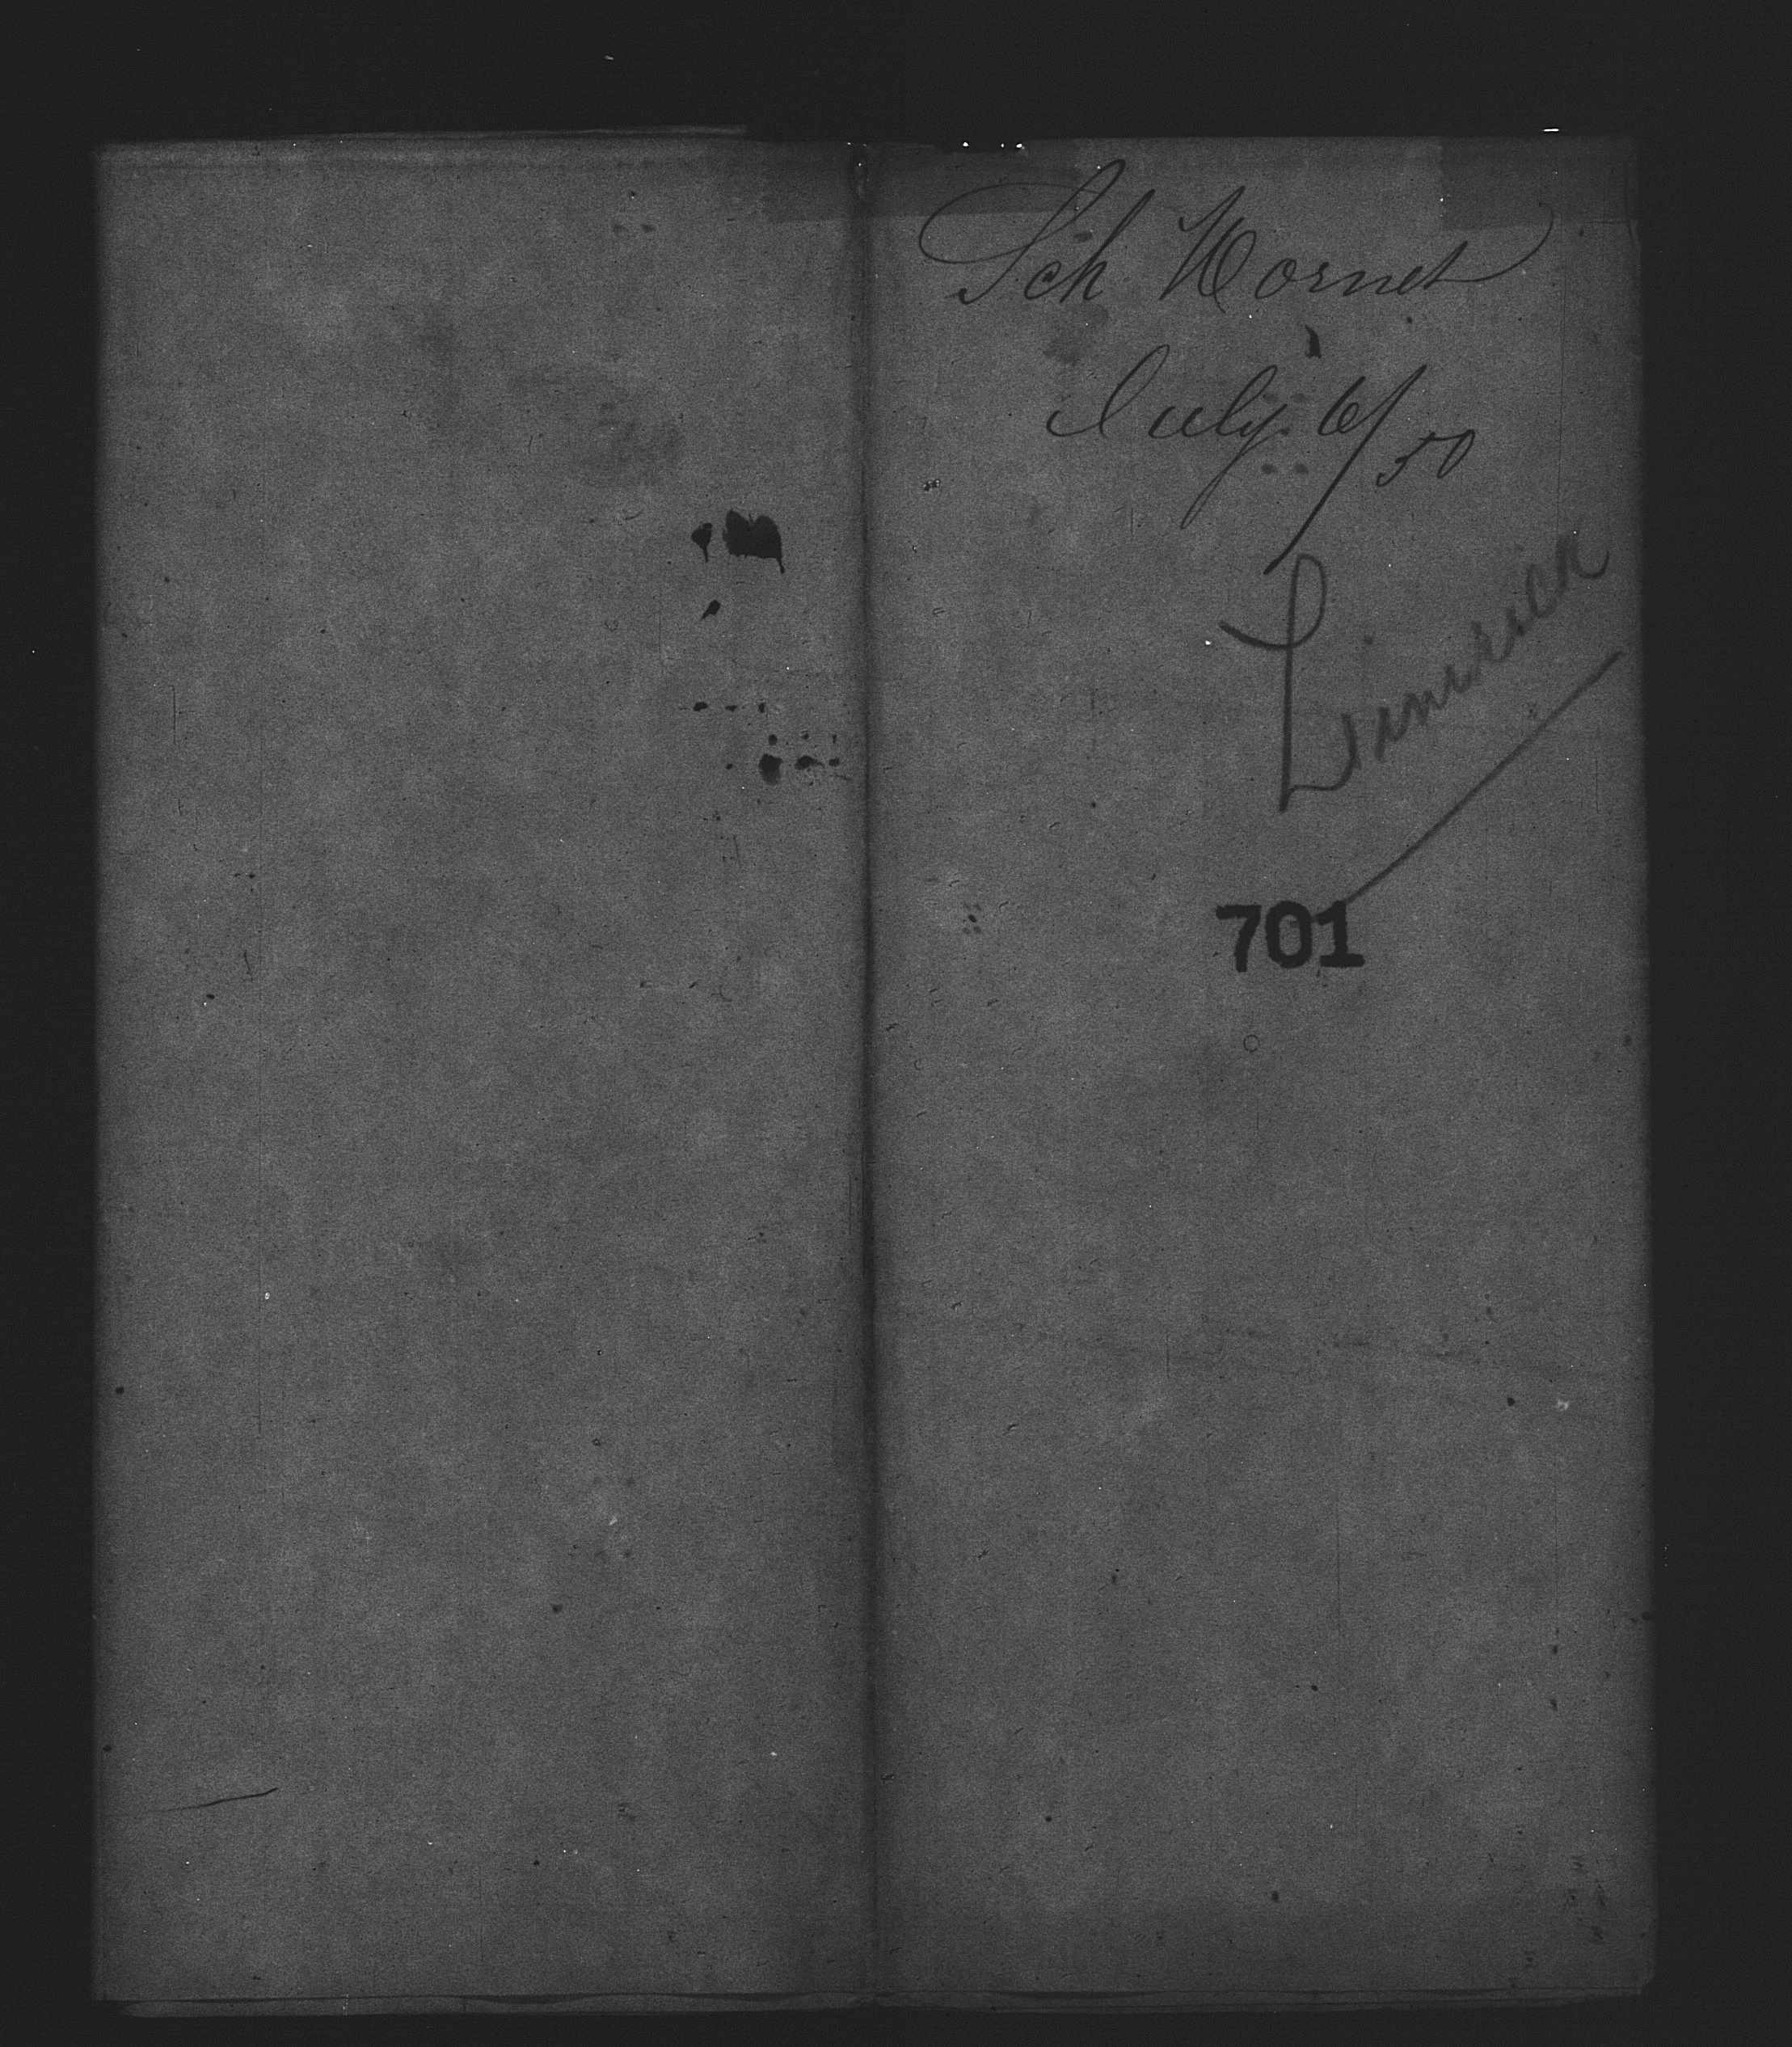 Sch Hornet
July 6/50
Limerick
701